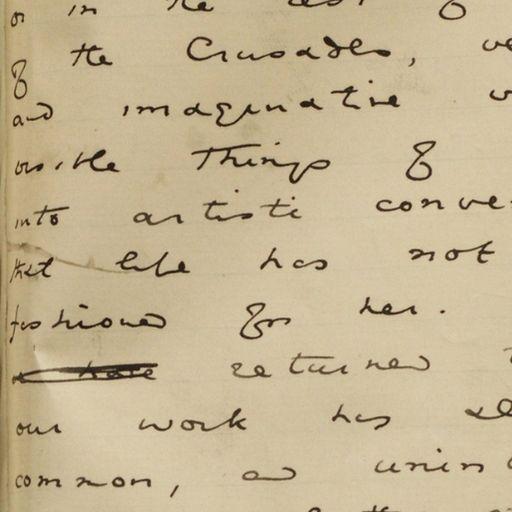 or in the
of the Crusades,
and imaginative
visible things of
into artistic conve
that life has not
fashioned for her.
returned
our work has
common, and unin